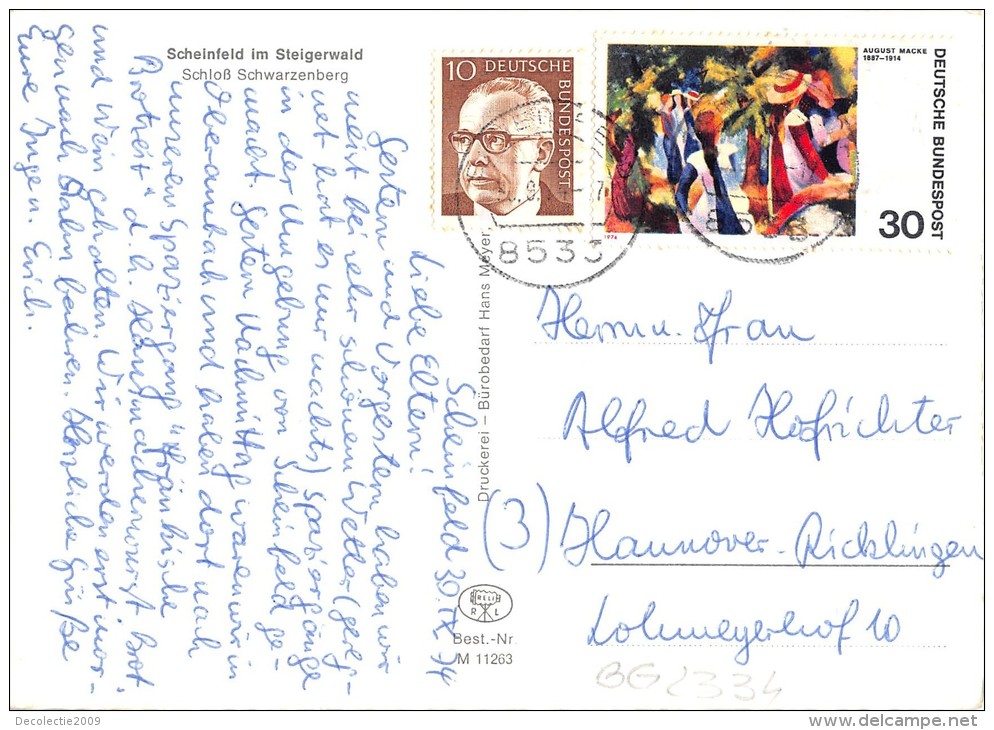 Scheinfeld im Steigerwald
Schloß Schwarzenberg
Scheinfeld 30. IX. 74
Liebe Eltern!
Gestern und Vorgestern haben wir
meist bei sehr schönem Wetter (gereg-
net hat es nur nachts) Spaziergänge
in der Umgebung von Scheinfeld ge-
macht. Gestern Nachmittag waren wir in
Oberambach und haben dort nach
unserem Spaziergang "Fränkische
Brotzeit" d.h. Hausmacherwurst Brot
und Wein gehalten. Wir werden erst mor-
gen nach Hahn fahren. Herzliche Grüße
Eure Inge u. Erich.
Druckerei – Bürobedarf Hans Meyer,
RELI
R L
Best.-Nr
M 11263
10 DEUTSCHE
BUNDESPOST
AUGUST MACKE
1887–1914
DEUTSCHE BUNDESPOST
30
1974
8533
Herrn u. Frau
Alfred Hofrichter
(3) Hannover-Ricklingen
Lohmeyerhof 10
BG2334
Decolectie2009
www.delcampe.net